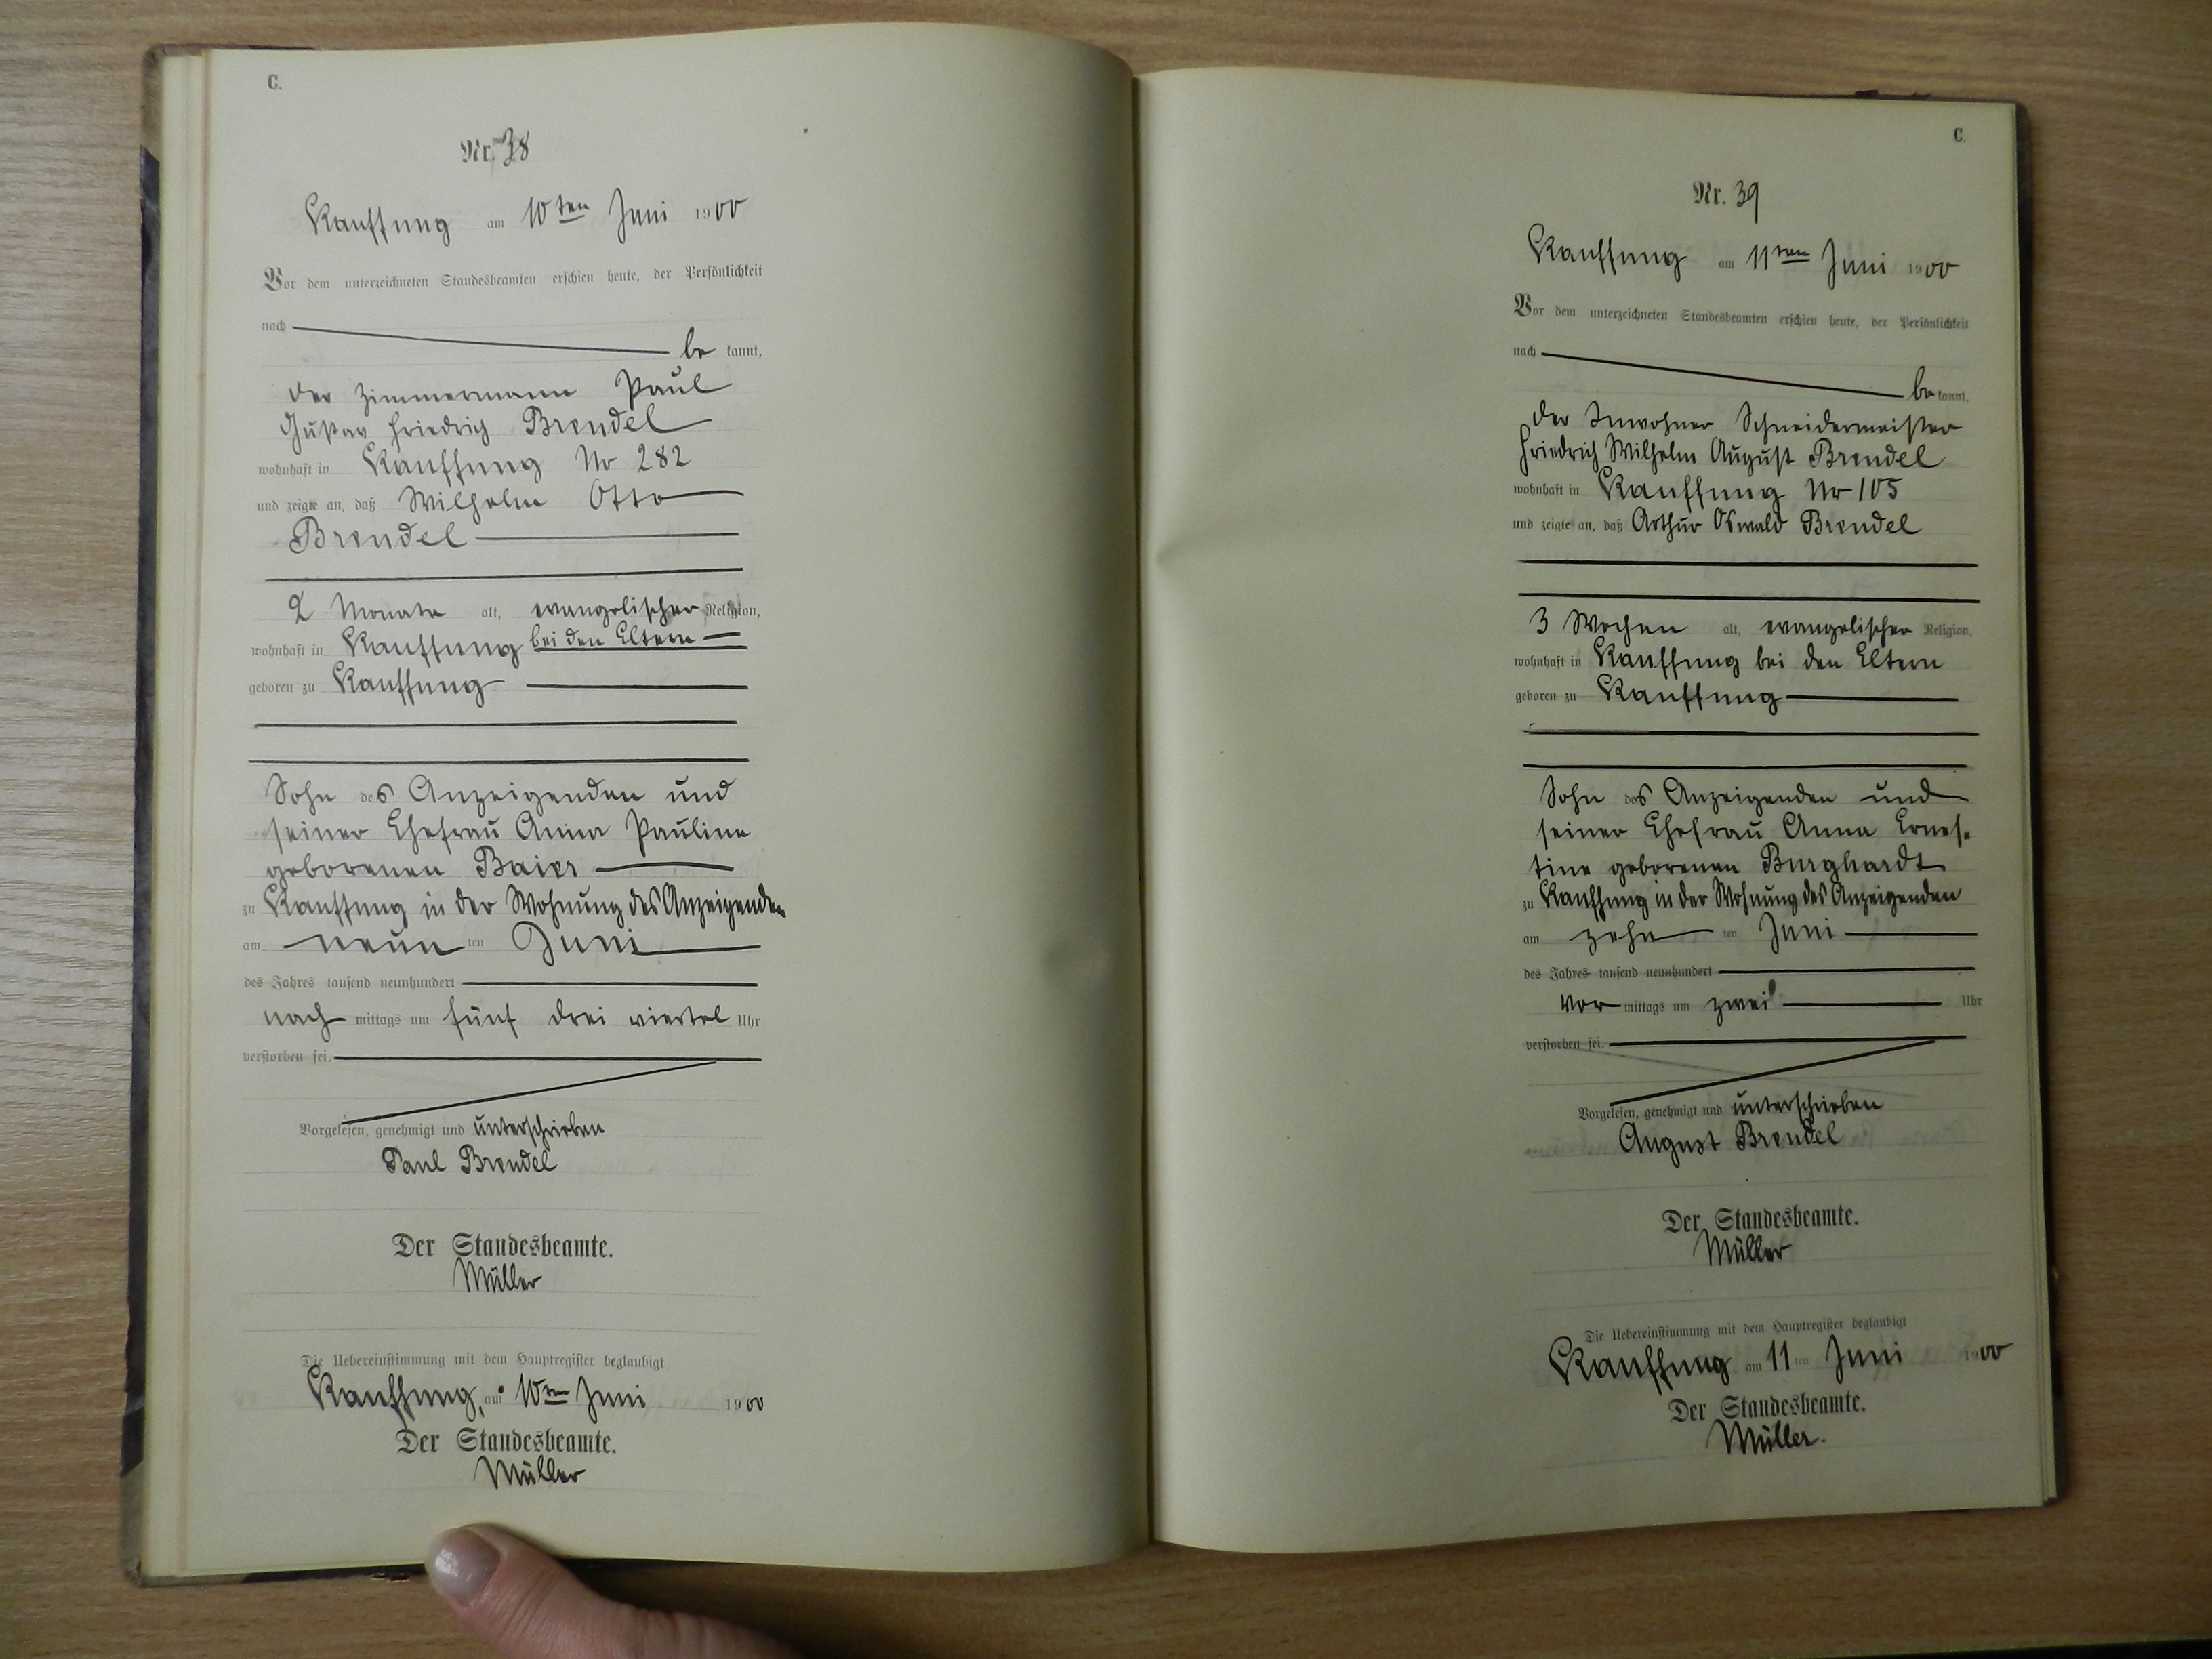 C.
Nr. 38
Kauffung am 10ten Juni 1900
Vor dem unterzeichneten Standesbeamten erschien heute, der Persönlichkeit
nach
be kannt,
der Zimmermann Paul
Gustav Friedrich Brendel
wohnhaft in Kauffung No 282
und zeigte an, daß Wilhelm Otto
Brendel
2 Monate alt, evangelischer Religion,
wohnhaft in Kauffung bei den Eltern
geboren zu Kauffung
Sohn des Anzeigenden und
seiner Ehefrau Anna Pauline
geborenen Baier
zu Kauffung in der Wohnung des Anzeigenden
am neun ten Juni
des Jahres tausend neunhundert
nach mittags um fünf drei viertel Uhr
verstorben sei.
Vorgelesen, genehmigt und unterschrieben
Paul Brendel
Der Standesbeamte.
Müller
Die Uebereinstimmung mit dem Hauptregister beglaubigt
Kauffung, am 10ten Juni 1900
Der Standesbeamte.
Müller
C.
Nr. 39
Kauffung am 11ten Juni 1900
Vor dem unterzeichneten Standesbeamten erschien heute, der Persönlichkeit
nach
be kannt,
der Inwohner Schneidermeister
Friedrich Wilhelm August Brendel
wohnhaft in Kauffung No 105
und zeigte an, daß Arthur Oswald Brendel
3 Wochen alt, evangelischer Religion,
wohnhaft in Kauffung bei den Eltern
geboren zu Kauffung
Sohn des Anzeigenden und
seiner Ehefrau Anna Ernes-
tine geborenen Burghardt
zu Kauffung in der Wohnung des Anzeigenden
am zehn ten Juni
des Jahres tausend neunhundert
vor mittags um zwei Uhr
verstorben sei.
Vorgelesen, genehmigt und unterschrieben
August Brendel
Der Standesbeamte.
Müller
Die Uebereinstimmung mit dem Hauptregister beglaubigt
Kauffung, am 11 ten Juni 1900
Der Standesbeamte.
Müller.